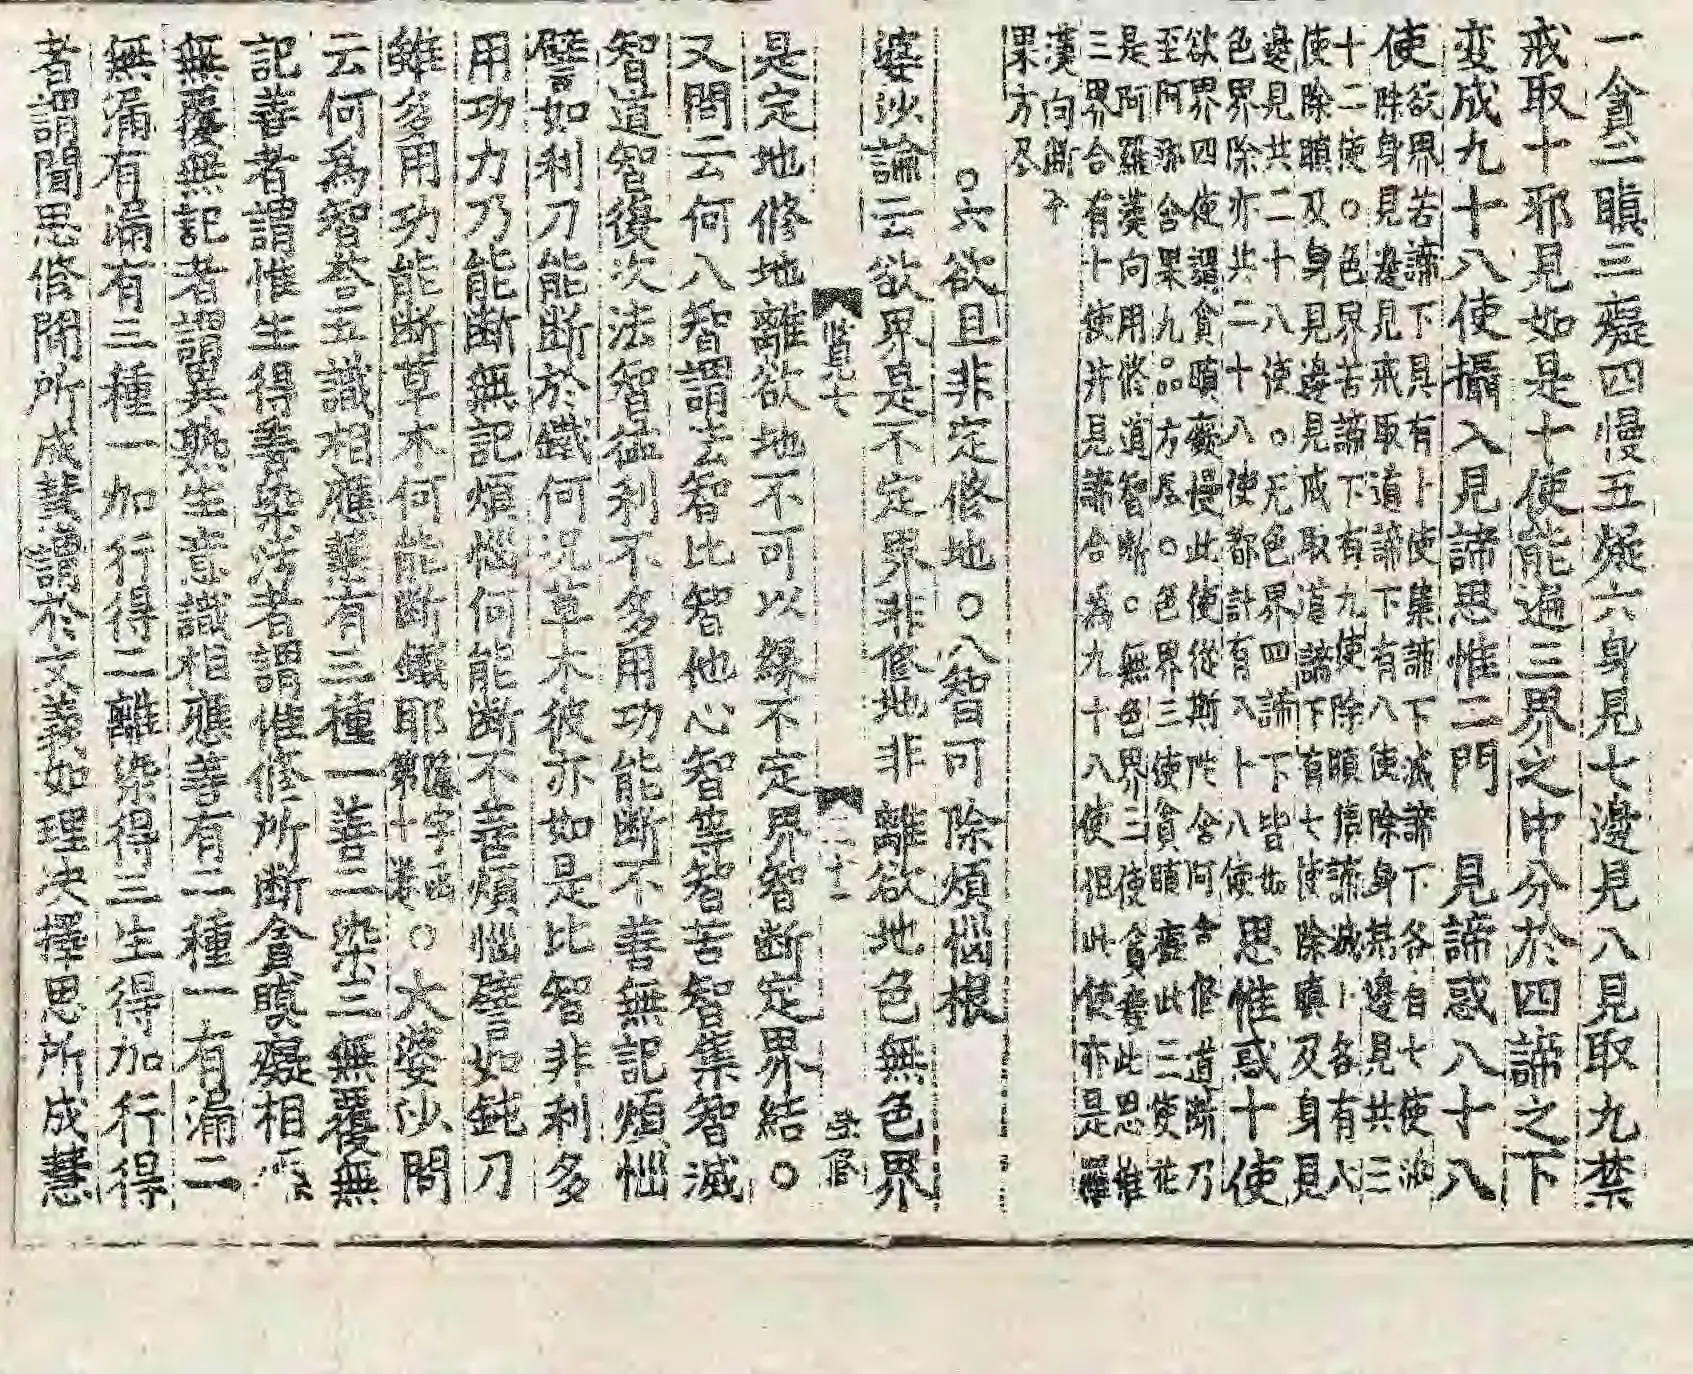 一貪二瞋三癡四慢五疑六身見七邊見八見取九禁
戒取十邪見如是十使能遍三界之中分於四諦之下
変成九十八使攝入見諦思惟二門 見諦惑八十八
使
欲界若諦下具有十使集諦下滅諦下各自七使
除身見邊見戒取道諦下有八使除身邊見共三
十二使○色界苦諦下有九使除瞋
使除瞋及身見邊見戒取道諦下有七使除瞋及身見
邊見共二十八使○无色界四諦下皆如
色界除亦共二十八使都計有八十八使
思惟惑十使
欲界四使謂貪瞋癡慢此使從斯陀含向
至阿那含果九品方尽○色界三使貪
是阿羅漢向用修道智断○無色界三使貪癡此思惟
三界合有十使并見諦合為九十八使但此使亦是羅
漢向断
果方尽
○六欲且非定修地○八智可除煩惱根
婆沙論云欲界是不定界非修地非離欲地色無色界
是定地修地離欲地不可以緣不定界智断定界結○
又問云何八智謂法智比智他心智等智苦智集智滅
智道智復次法智猛利不多用功能断不善無記煩惱
譬如利刀能断於鐵何況草木彼亦如是比智非利多
用功力乃能断無記煩惱何能断不善煩惱譬如鈍刀
雖多用功能断草木何能断鐵耶
十卷
○大婆沙問
云何為智荅五識相應慧有三種一善二染三無覆無
記善者謂惟生得善染法者謂惟修所断貪瞋癡相應
無覆無記者謂異熟生意識相應善有二種一有漏二
無漏有漏有三種一加行得二離染得三生得加行得
者謂聞思修聞所成慧謂於文義如理決擇思所成慧